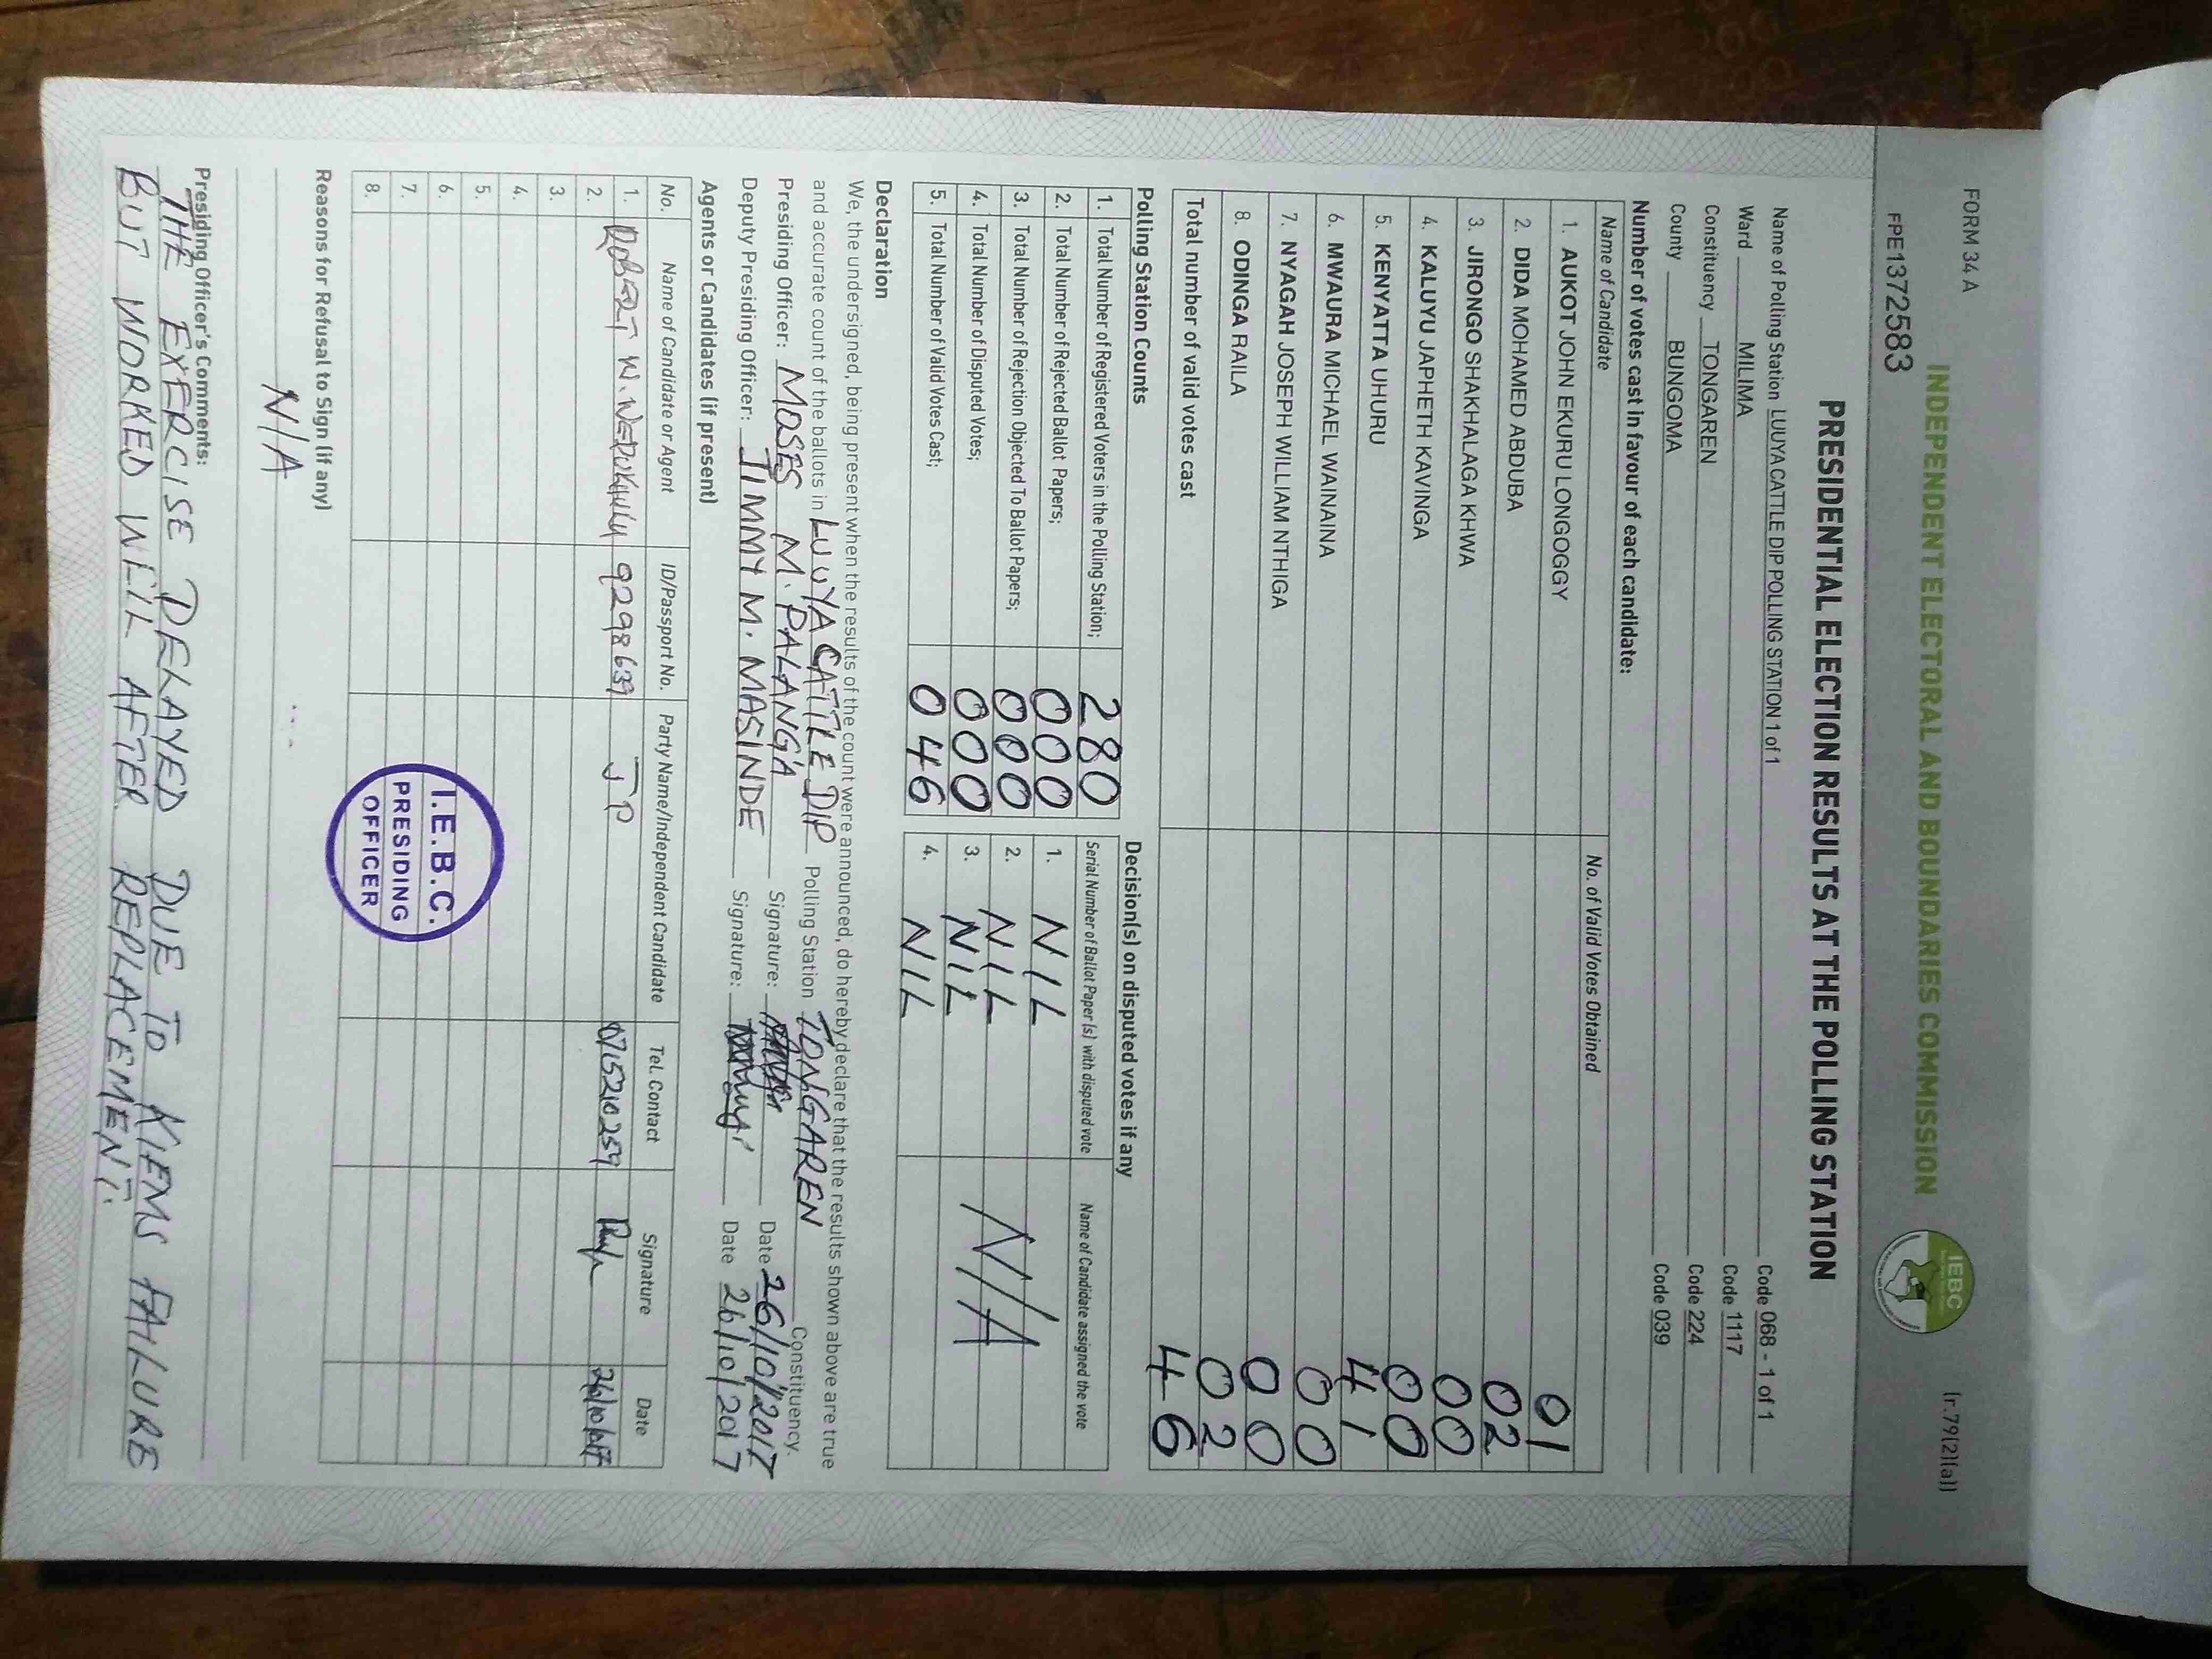 FORM 34 A
(r.79(2)(a))
INDEPENDENT ELECTORAL AND BOUNDARIES COMMISSION
IEBC
FPE1372583
PRESIDENTIAL ELECTION RESULTS AT THE POLLING STATION
Name of Polling Station LUUYA CATTLE DIP POLLING STATION 1 of 1 Code 068 - 1 of 1
Ward MILIMA Code 1117
Constituency TONGAREN Code 224
County BUNGOMA Code 039
Number of votes cast in favour of each candidate:
Name of Candidate No. of Valid Votes Obtained
1. AUKOT JOHN EKURU LONGOGGY 01
2. DIDA MOHAMED ABDUBA 02
3. JIRONGO SHAKHALAGA KHWA 00
4. KALUYU JAPHETH KAVINGA 00
5. KENYATTA UHURU 41
6. MWAURA MICHAEL WAINAINA 00
7. NYAGAH JOSEPH WILLIAM NTHIGA 00
8. ODINGA RAILA 02
Total number of valid votes cast 46
Polling Station Counts
1. Total Number of Registered Voters in the Polling Station; 280
2. Total Number of Rejected Ballot Papers; 000
3. Total Number of Rejection Objected To Ballot Papers; 000
4. Total Number of Disputed Votes; 000
5. Total Number of Valid Votes Cast; 046
Decision(s) on disputed votes if any
Serial Number of Ballot Paper (s) with disputed vote Name of Candidate assigned the vote
1. NIL
2. NIL
3. NIL N/A
4. NIL
Declaration
We, the undersigned, being present when the results of the count were announced, do hereby declare that the results shown above are true
and accurate count of the ballots in LUUYA CATTLE DIP Polling Station TONGAREN Constituency.
Presiding Officer: MOSES M. PALANGA Signature: Date 26/10/2017
Deputy Presiding Officer: TIMMY M. MASINDE Signature: Date 26/10/2017
Agents or Candidates (if present)
No. Name of Candidate or Agent ID/Passport No. Party Name/Independent Candidate Tel. Contact Signature Date
1. ROBERT W. 9298639 JP 0715210259
2.
3.
4.
5.
6.
7.
8.
I.E.B.C.
PRESIDING
OFFICER
Reasons for Refusal to Sign (if any)
N/A
Presiding Officer's Comments:
THE EXERCISE DELAYED DUE TO KIEMS FAILURE
BUT WORKED WELL AFTER REPLACEMENT.